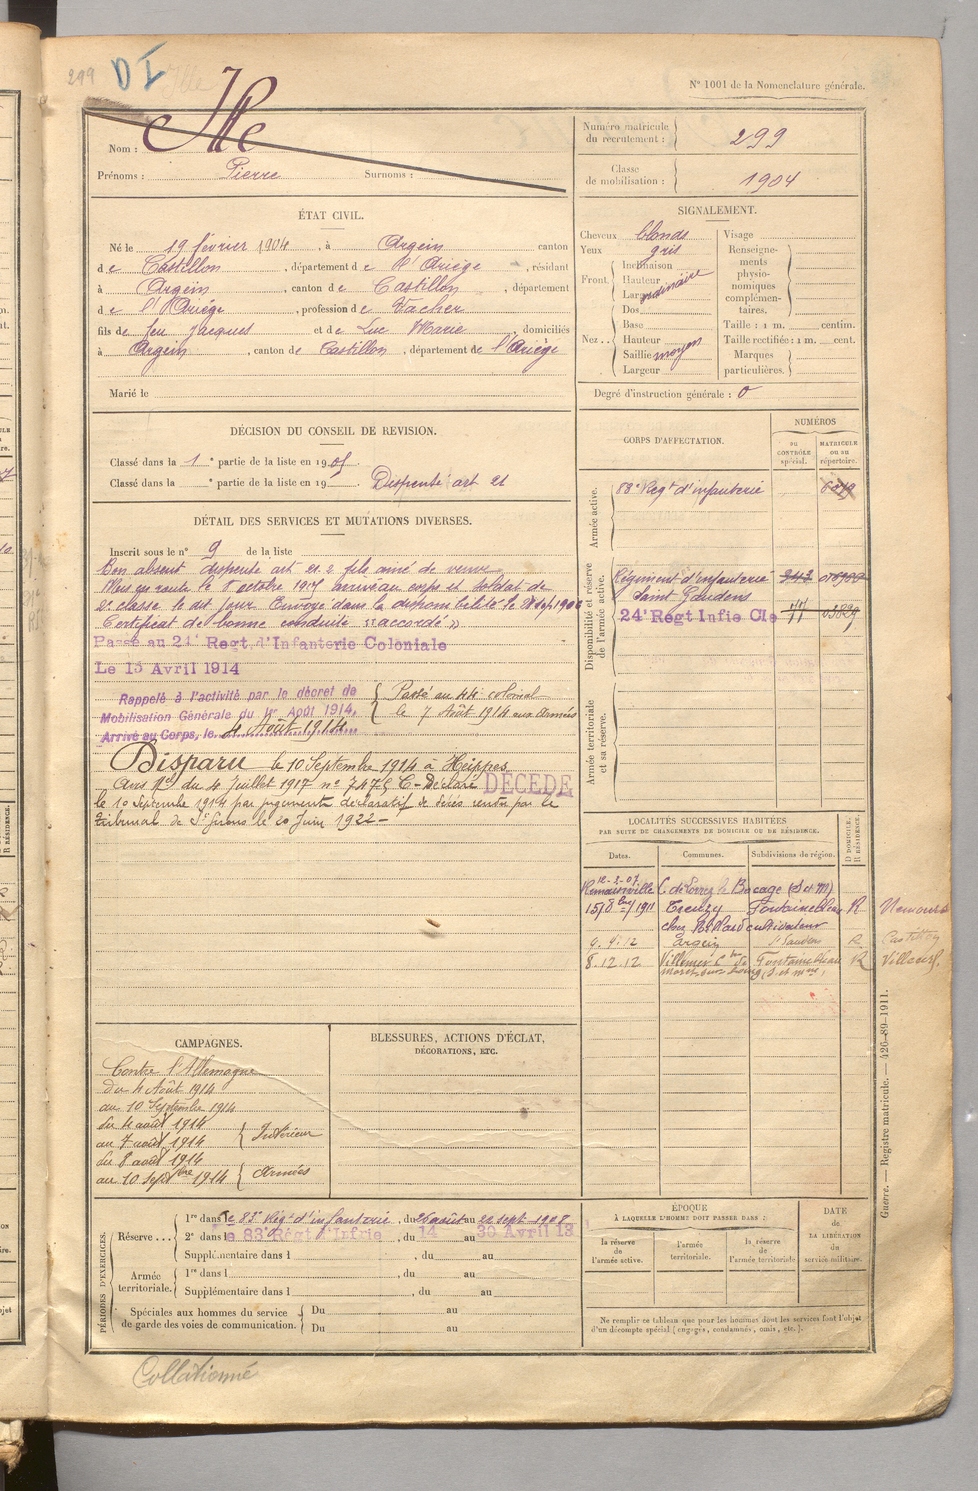 299 DI Ille
N° 1001 de la Nomenclature générale.
Nom : Ille
Prénoms : Pierre Surnoms :
Numéro matricule du recrutement : 299
Classe de mobilisation : 1904
ÉTAT CIVIL.
Né le 19 février 1904, à Argein canton
de Castillon, département de l'Ariège, résidant
à Argein, canton de Castillon, département
de l'Ariège, profession de Vacher
fils de feu Jacques et de Luc Marie, domiciliés
à Argein, canton de Castillon, département de l'Ariège
Marié le
SIGNALEMENT.
Cheveux blonds
Yeux gris
Front. Inclinaison
Hauteur
Largeur
ordinaire
Nez.. Dos
Base
Hauteur
Saillie moyen
Largeur
Visage
Renseignements physionomiques complémentaires.
Taille : 1 m. centim.
Taille rectifiée : 1 m. cent.
Marques particulières.
Degré d'instruction générale : 0
DÉCISION DU CONSEIL DE REVISION.
Classé dans la 1e partie de la liste en 1905.
Classé dans la e partie de la liste en 19 . Dispensé art 21
DÉTAIL DES SERVICES ET MUTATIONS DIVERSES.
Inscrit sous le n° 9 de la liste
Bon absent dispensé art 21.2. fils aîné de veuve.
Mis en route le 8 octobre 1905 arrivé au corps et soldat de
2e classe le dit jour. Envoyé dans la disponibilité le sep 1906
Certificat de bonne conduite "accordé"
Passé au 24e Regt d'Infanterie Coloniale
Le 13 Avril 1914
Rappelé à l'activité par le décret de
Mobilisation Générale du 1er Août 1914,
Arrivé au Corps, le 4 Août 1914.
Passé au 44e colonial
le 7 Août 1914 aux armées
Disparu le 10 Septembre 1914 à Heippes
Avis Mel du 4 Juillet 1917 n° 7475 C- Déclaré DÉCÉDÉ
le 10 Septembre 1914 par jugement déclaratif de décès rendu par le
tribunal de St Girons le 20 Juin 1922 -
CORPS D'AFFECTATION.
NUMÉROS
DU CONTRÔLE spécial.
MATRICULE OU AU répertoire.
Armée active.
88e Regt d'infanterie 6219
Disponibilité et réserve de l'armée active.
Régiment d'infanterie 343
Saint Gaudens
24e Regt Infie Cle 77 03829
Armée territoriale et sa réserve.
LOCALITÉS SUCCESSIVES HABITÉES
PAR SUITE DE CHANGEMENTS DE DOMICILE OU DE RÉSIDENCE.
Dates. Communes. Subdivisions de région.
D DOMICILE. R RÉSIDENCE.
12-2-07
(de Lorrez le Bocage (S et M)
15/8bre/1911 Treuzy Fontainebleau R Nemours
cultivateur
9.9.12 Argein St Gaudens R. Castillon
8.12.12 Villemer Con de Fontainebleau R
moret sur Loing (S. et Mne)
CAMPAGNES.
Contre l'Allemagne
du 4 Août 1914
au 10 Septembre 1914
du 4 août 1914
au 7 août 1914 Intérieur
du 8 août 1914
au 10 Septbre 1914 Armées
BLESSURES, ACTIONS D'ÉCLAT,
DÉCORATIONS, ETC.
PÉRIODES D'EXERCICES.
Réserve... 1re dans le 83e Regt d'infanterie, du 26 août au 22 sept 1908
2e dans le 83e Régt d'Infrie, du 14 au 30 Avril 13
Supplémentaire dans l , du au
Armée territoriale. 1re dans l , du au
Supplémentaire dans l , du au
Spéciales aux hommes du service de garde des voies de communication. Du au
Du au
ÉPOQUE
À LAQUELLE L'HOMME DOIT PASSER DANS :
la réserve de l'armée active.
l'armée territoriale.
la réserve de l'armée territoriale
DATE de LA LIBÉRATION du service militaire.
Ne remplir ce tableau que pour les hommes dont les services font l'objet
d'un décompte spécial (engagés, condamnés, omis, etc.).
Guerre. — Registre matricule. — 426-89-1911.
Collationné